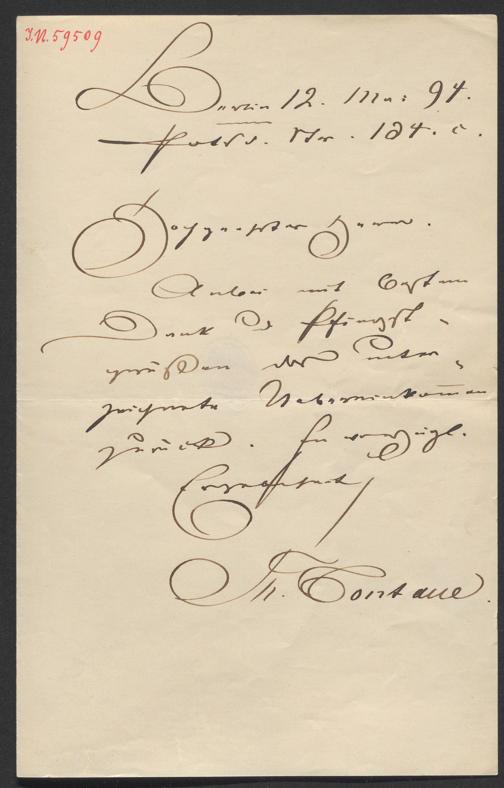 I.N. 59509
Berlin 12. Mai 94.
Potsd. Str. 134. c.
Hochgeehrter Herr.
Anbei mit bestem
Dank u. Pfingst-
grüßen der unter-
zeichnete Uebereinkommen
zurück. In vorzügl.
Ergebenheit
Th. Fontane.